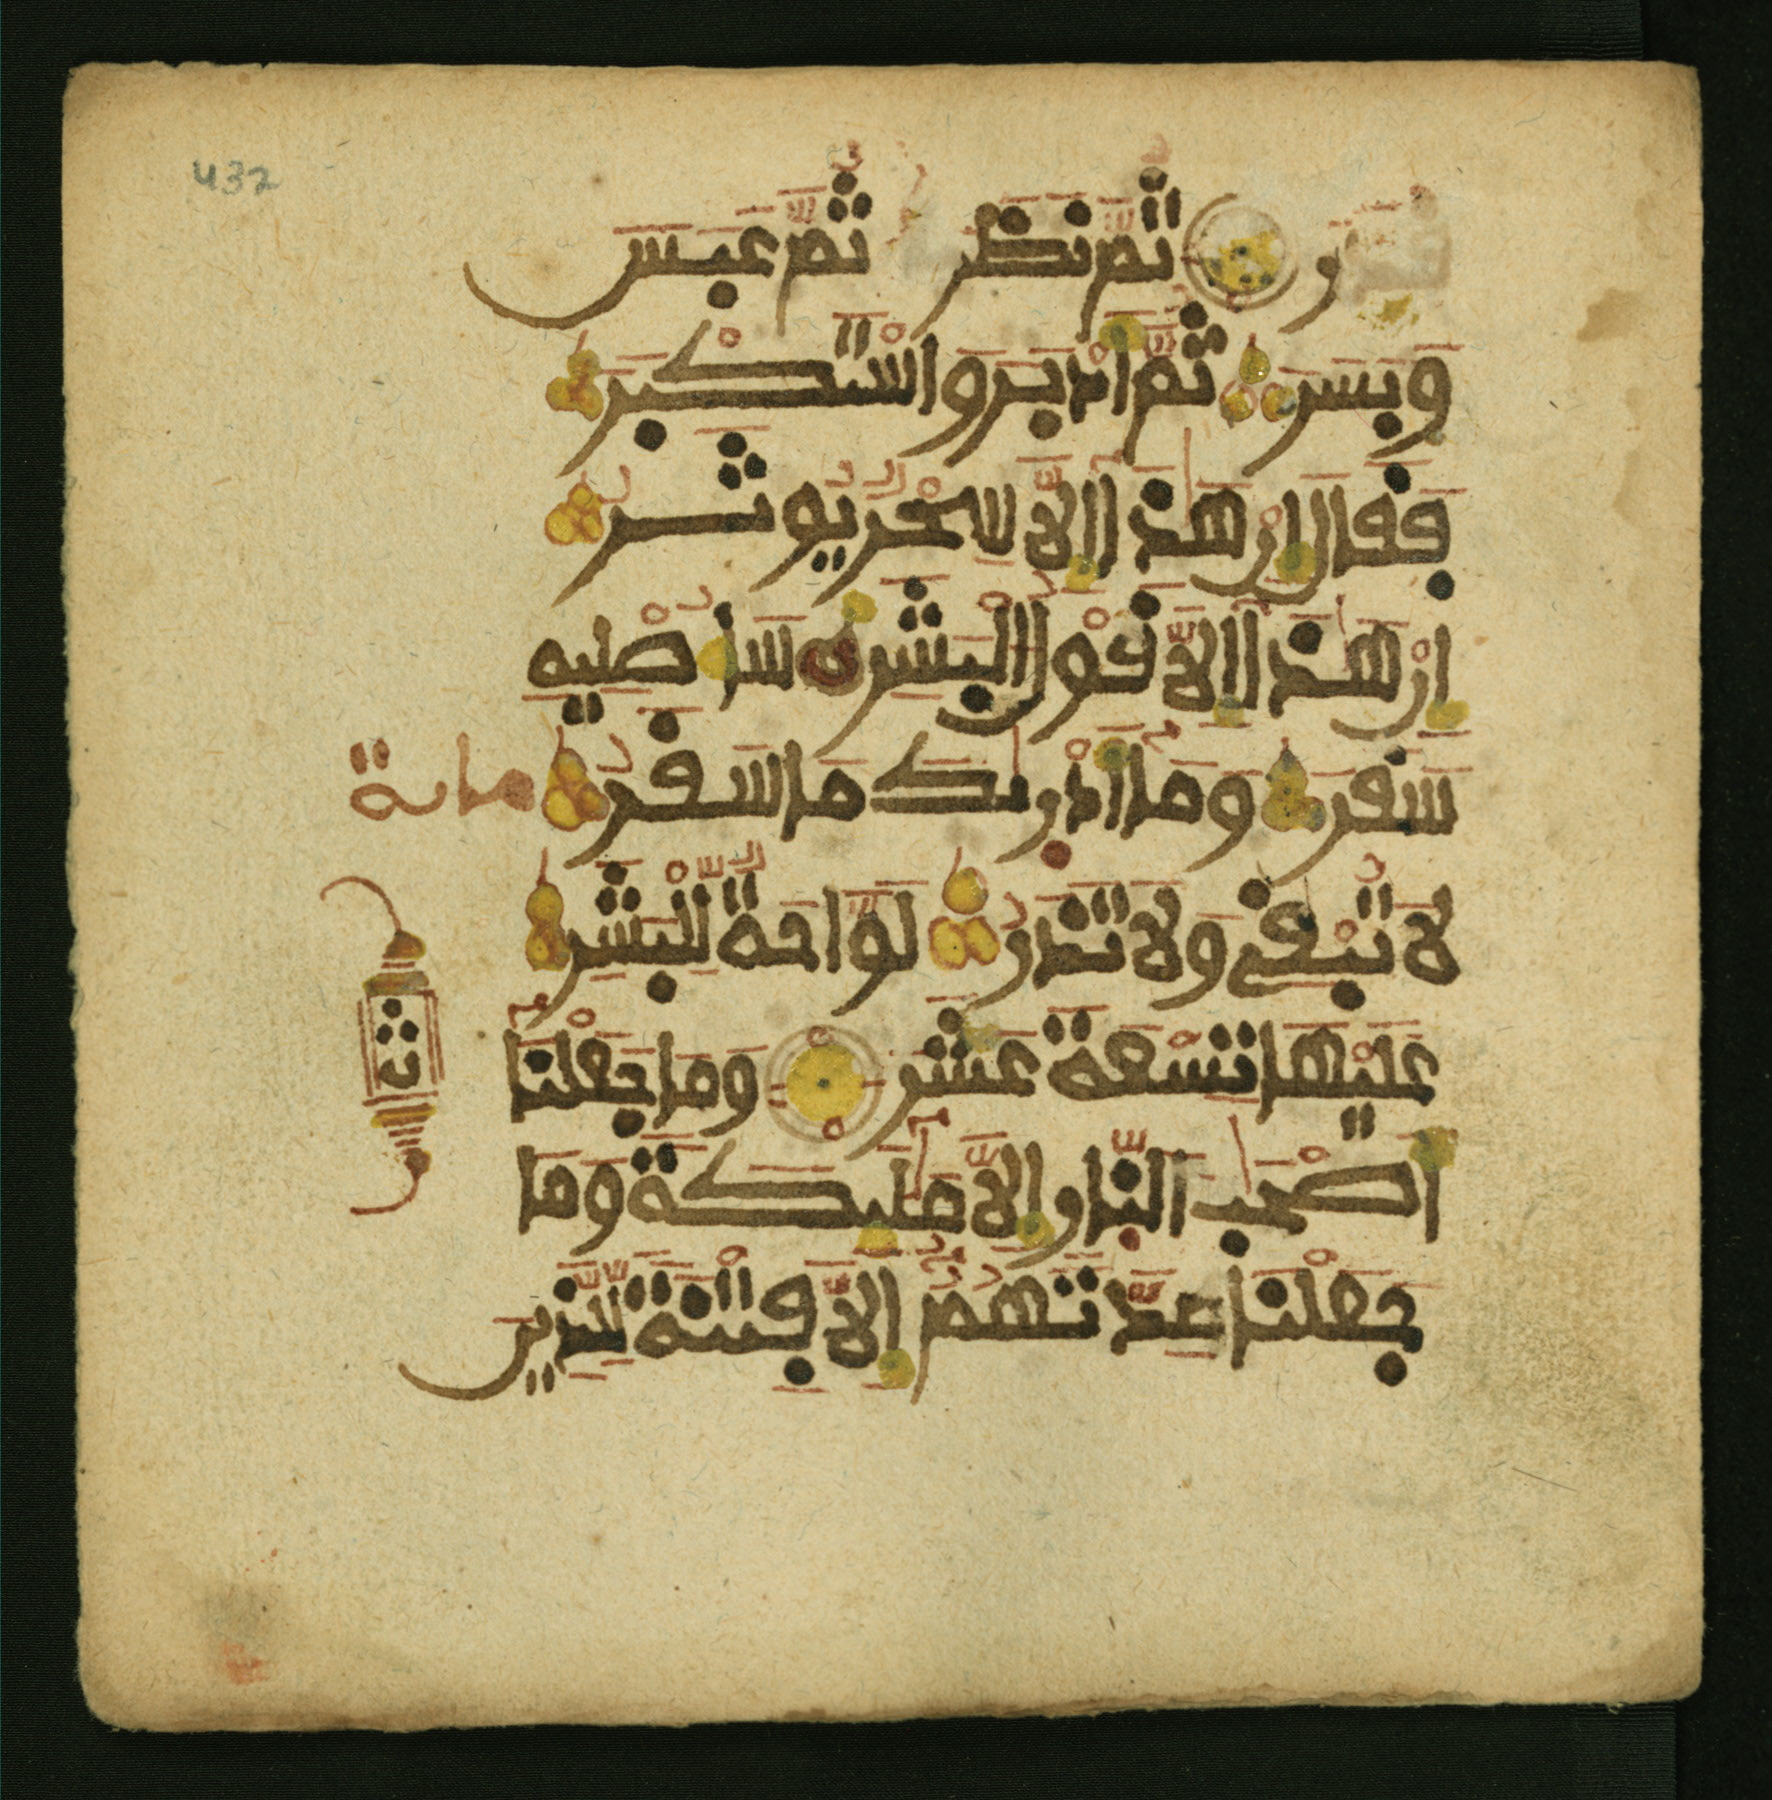 432
قدر ثم نظر ثم عبس
وبسر ثم أدبر واستكبر
فقال إن هذا إلا سحر يوثر
إن هذا إلا قول البشر سأصليه
سقر وما أدريك ما سقر
مائة
لا تبقي ولا تذر لواحة للبشر
عليها تسعة عشر وما جعلنا
ث
أصحب النار إلا مليكة وما
جعلنا عدتهم إلا فتنة للذين